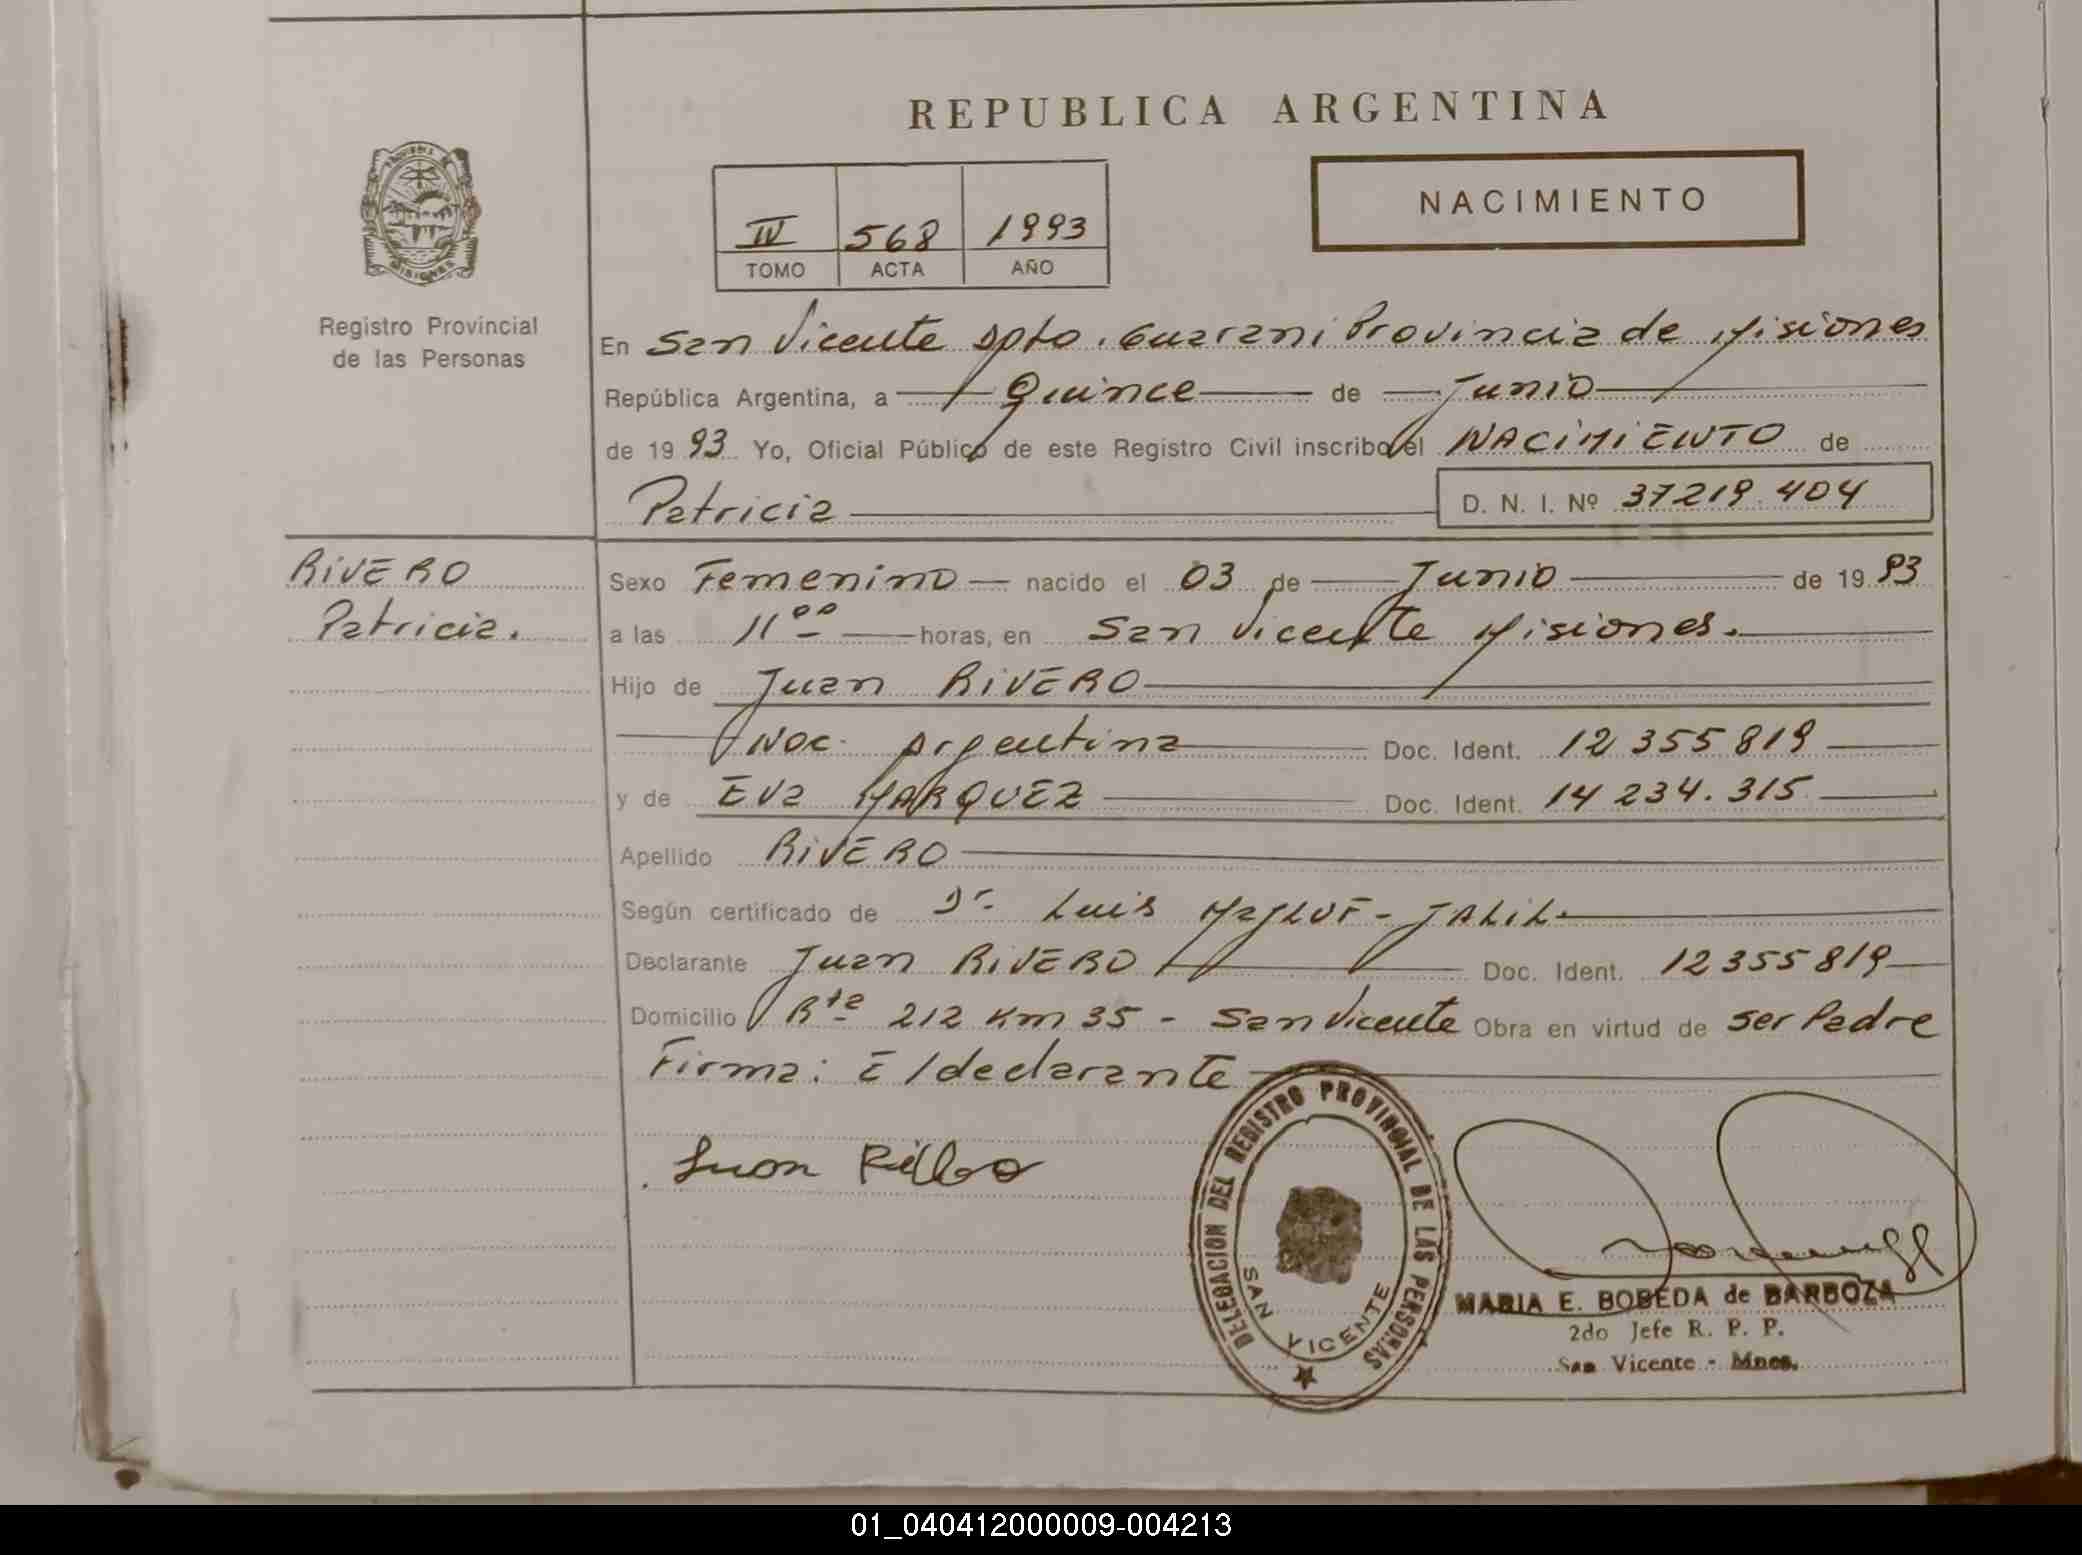 REPUBLICA ARGENTINA
NACIMIENTO
IV 568 1993
TOMO ACTA AÑO
MISIONES
Registro Provincial
de las Personas
En San Vicente Dpto. Guarani Provincia de Misiones
República Argentina, a Quince de Junio
de 1993 Yo, Oficial Público de este Registro Civil inscribo el NACIMIENTO de
Patricia D. N. I. Nº 37219.404
RIVERO
Patricia.
Sexo Femenino nacido el 03 de Junio de 1993
a las 11 00 horas, en San Vicente Misiones.
Hijo de Juan RIVERO
Nac. Argentina Doc. Ident. 12 355 819
y de Eva MARQUEZ Doc. Ident. 14 234.315
Apellido RIVERO
Según certificado de Dr. Luis JALIL.
Declarante Juan RIVERO Doc. Ident. 12355819
Domicilio Rta 212 Km 35 - San Vicente Obra en virtud de ser Padre
Firma: El declarante
Juan
DELEGACION DEL REGISTRO PROVINCIAL DE LAS PERSONAS
SAN VICENTE
MARIA E. BOBEDA de BARBOZA
2do Jefe R. P. P.
San Vicente - Mnes.
01_040412000009-004213